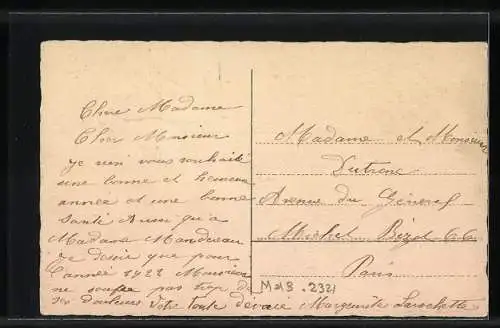 Chere Madame
Cher Monsieur
Je vien vous souhaité
une bonne et heureuse
année et une bonne
santé Ainsi qu'a
Madame
Je desire que pour
l'année 1922 Monsieur
ne souffre pas trop de
ses douleurs Votre toute dévoué Marguerite Larochette
Madame et Monsieur
Avenue du Général
Michel Bizot 66
Paris
M218.2321